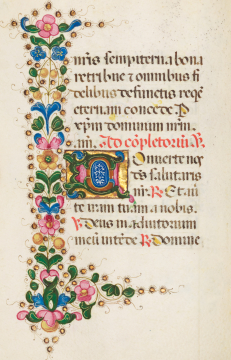 nr̄is sempiterna bona
retribue ⁊ omnibus fi
delibus defunctis reqē
eternam concede P
xp̄m dominum nr̄m.
am. Ad cōpletorium ℣.
Conuerte nos
ds̄ salutaris
nr̄. ℟ Et au
te iram tuam a nobis.
℣ Deus in adiutorium
meū intēde ℟ Domine